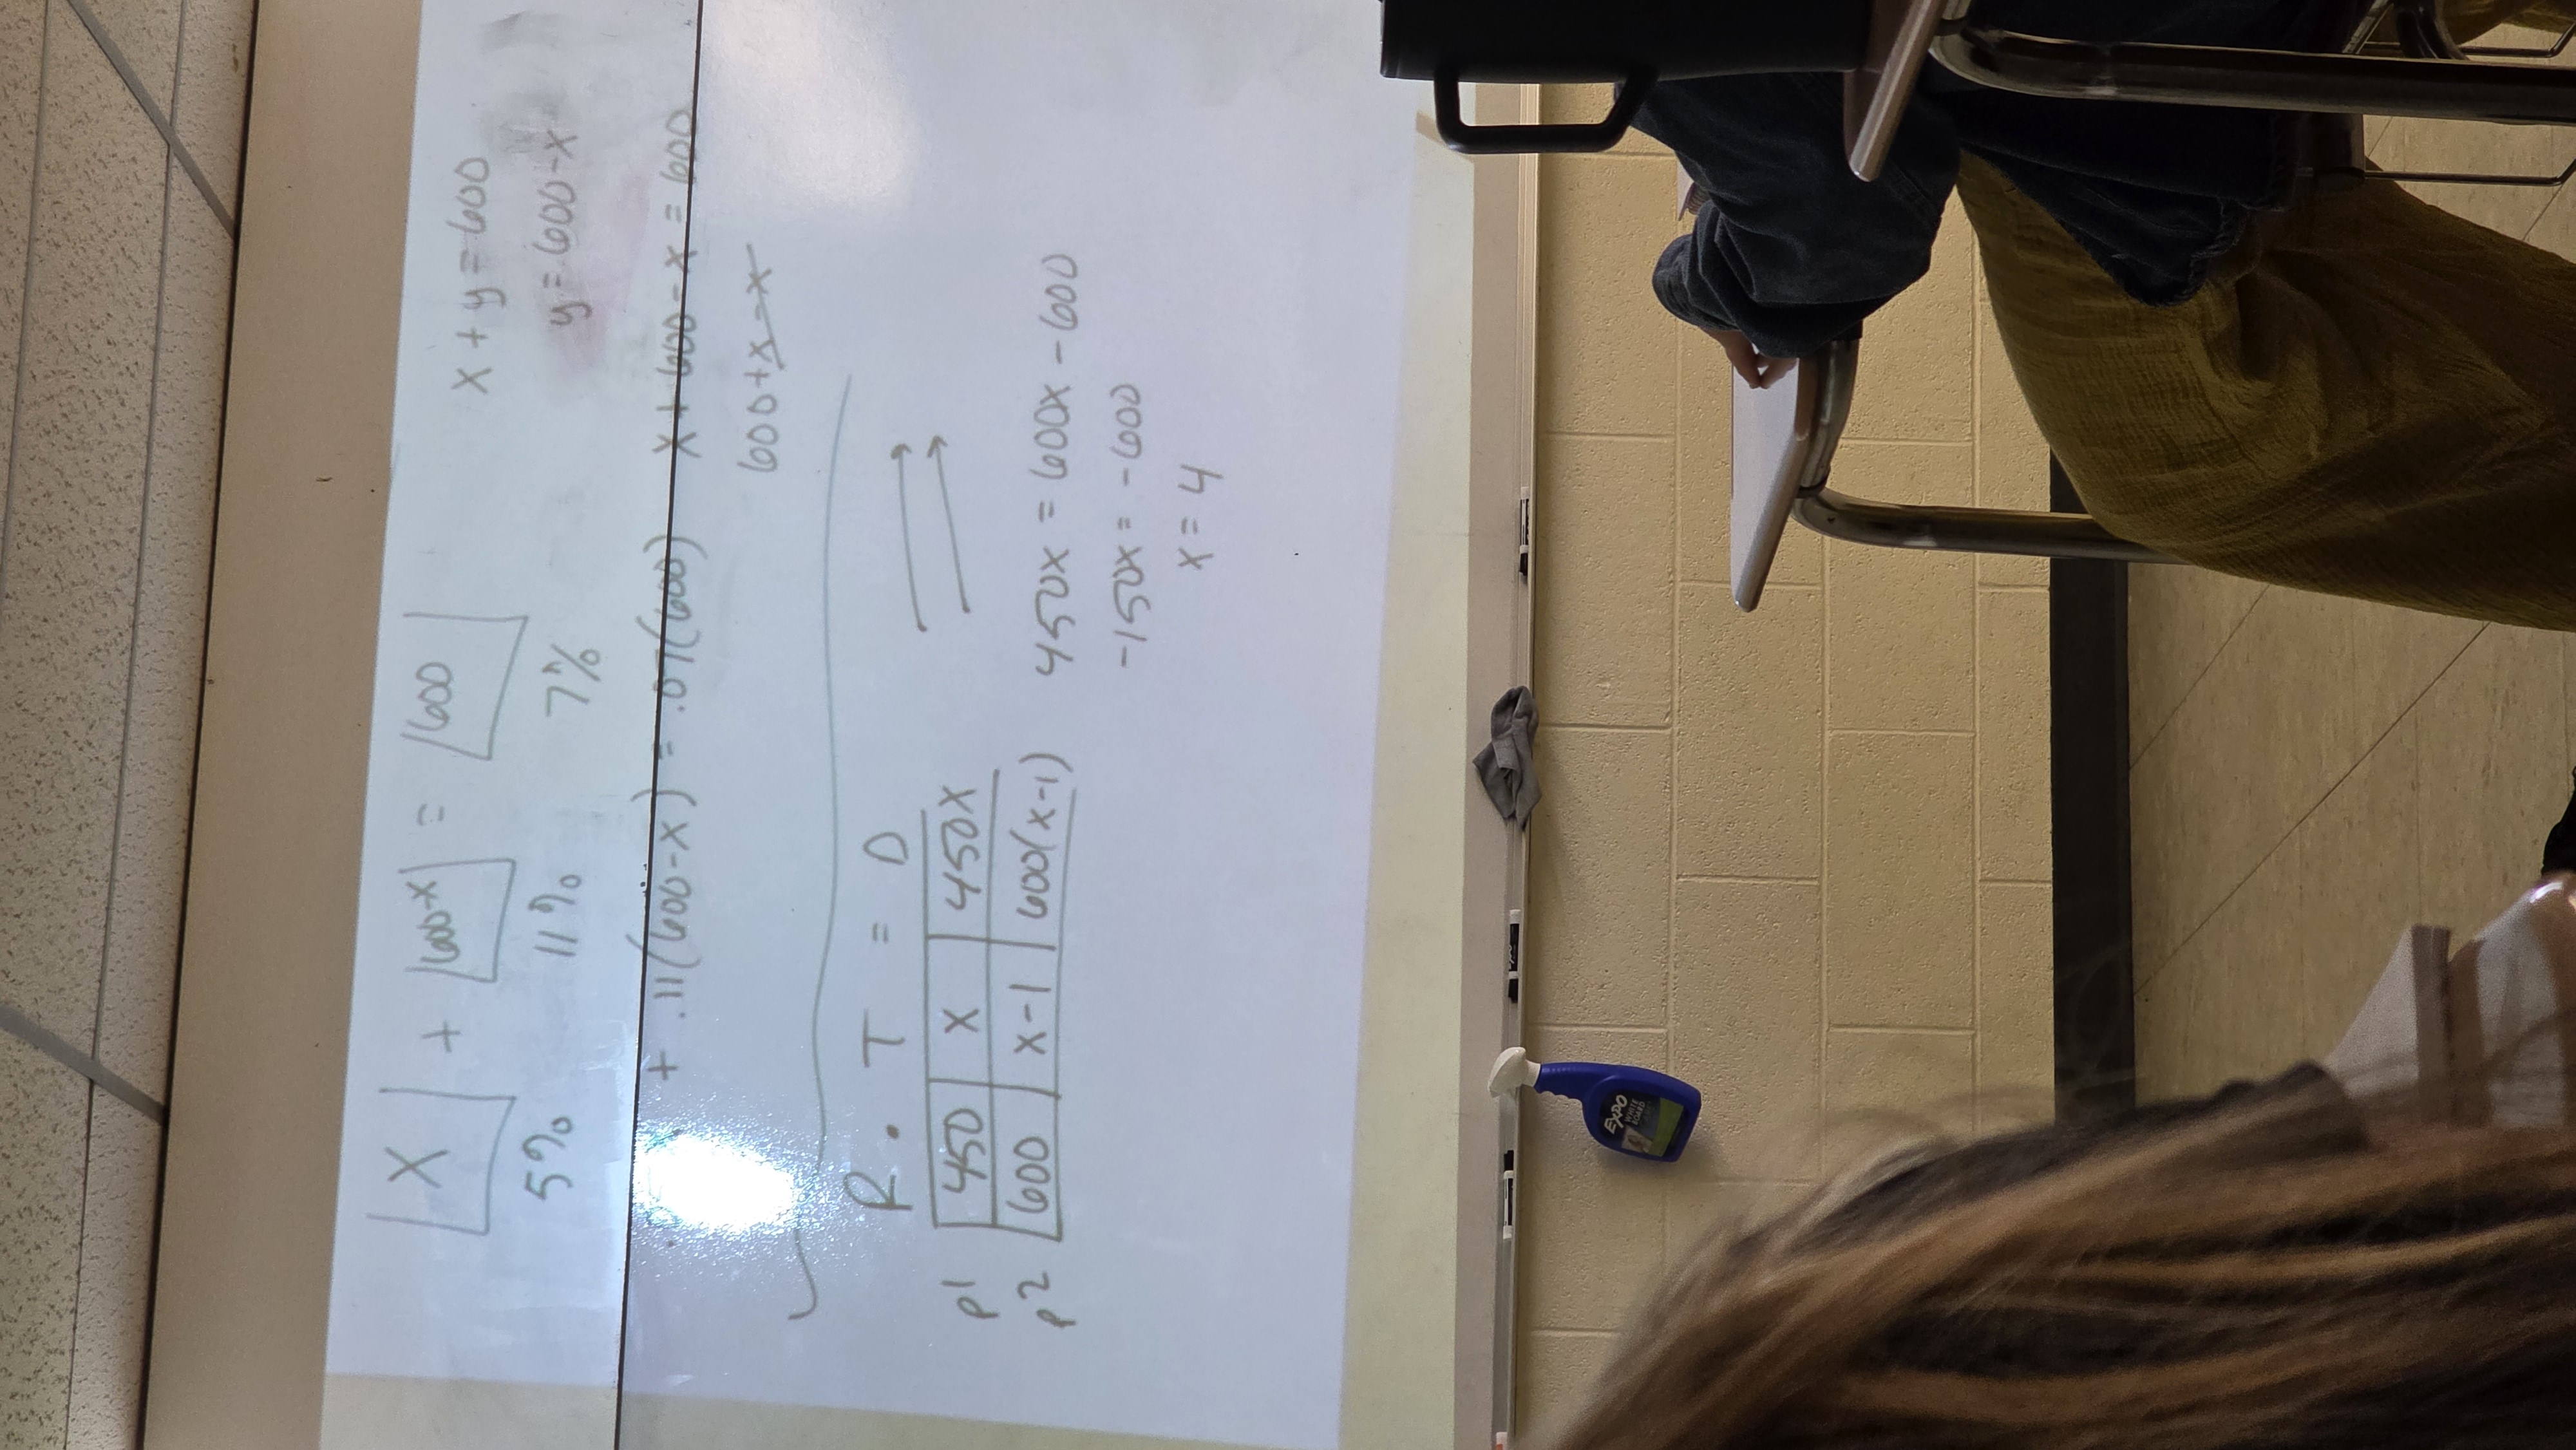 X + 600-x = 600
5% 11% 7%
x + y = 600
y = 600-x
+ .11(600-x) = .07(600)
x + 600 - x = 600
600+x-x
R • T = D
P1 450 x 450x
P2 600 x-1 600(x-1)
450x = 600x - 600
-150x = -600
x = 4
EXPO
WHITE
BOARD